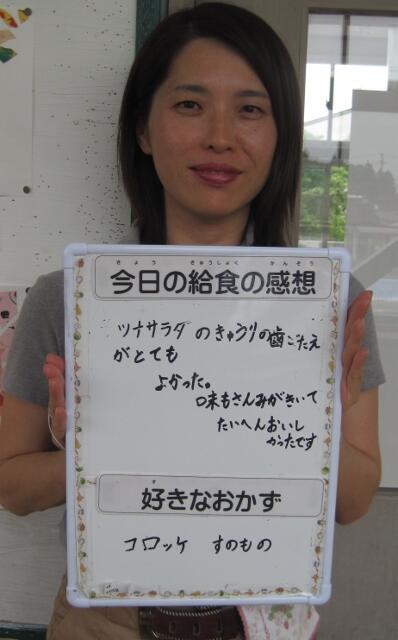 きょう きゅうしょく かんそう
今日の給食の感想
ツナサラダのきゅうりの歯ごたえ
がとても
よかった。
味もさんみがきいて
たいへんおいし
かったです
す
好きなおかず
コロッケ すのもの